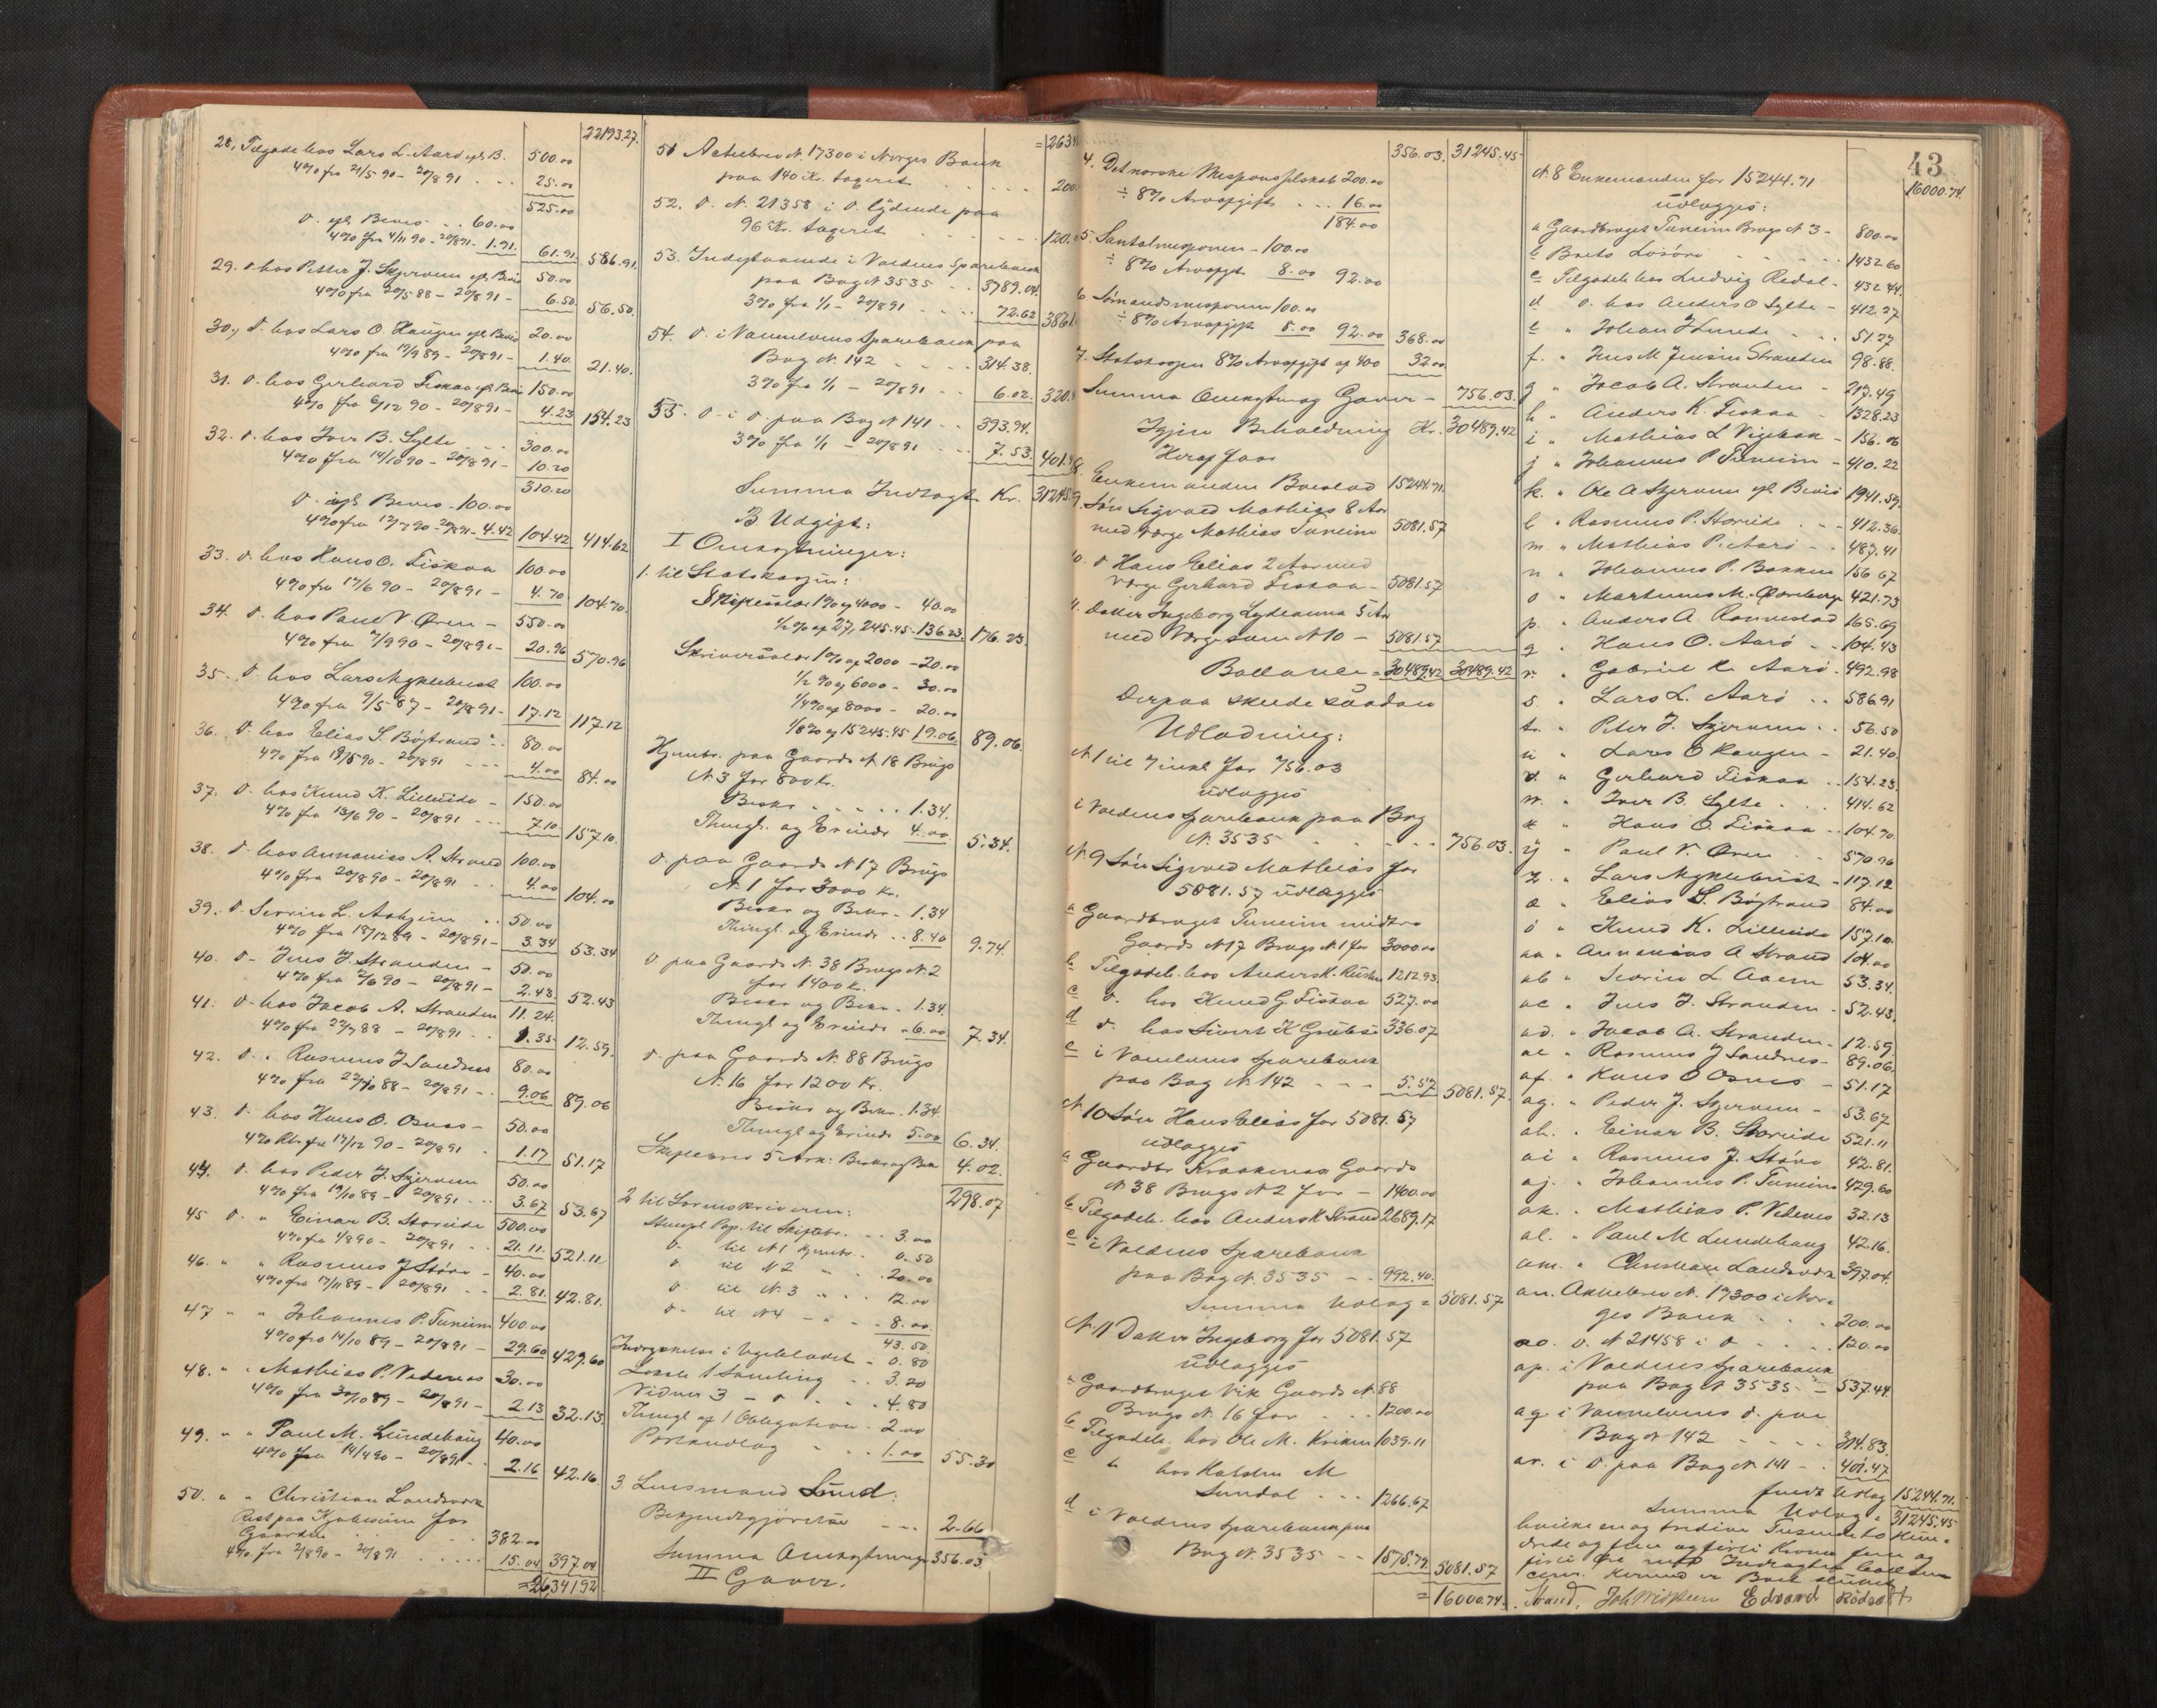 22193.27.
28, Tilgode hos Lars L. Aarø efl B. 500.00
4% fra 21/5 90 - 20/8 91 . . . 25.00
525.00
D. efl Bevis . . 60.00
4% fra 4/11 90 - 20/8 91 - 1.91. 61.91. 586.91.
29. D. hos Petter J. Skjervem efl Bevis 50.00
4% fra 20/5 88 - 20/8 91 - 6.50. 56.50.
30, D. hos Lars O. Haugen efl Bevis 20.00
4% fra 19/9 89 - 20/8 91 - 1.40. 21.40.
31. D. hos Gerhard Fiskaa efl Bevis 150.00
4% fra 6/12 90 - 20/8 91 - 4.23 154.23
32. D. hos Iver B. Sylte . . . 300.00
4% fra 14/10 90 - 20/8 91 - 10.20
310.20
D. efl Bevis - 100.00
4% fra 12/7 90 - 20/8 91 - 4.42 104.42 414.62
33. D. hos Hans O. Fiskaa 100.00
4% fra 17/6 90 - 20/8 91 - 4.70 104.70.
34. D. hos Paul V. Øren - 550.00
4% fra 7/9 90 - 20/8 91 - 20.96 570.96
35. D. hos Lars Myklebust 100.00
4% fra 9/5 87 - 20/8 91 - 17.12 117.12
36. D. hos Elias S. Bøstrand . . 80.00
4% fra 19/5 90 - 20/8 91 - - - 4.00 84.00
37. D. hos Knud K. Lilleeide - 150.00
4% fra 13/6 90 - 20/8 91 - - - 7.10 157.10.
38. D. hos Annanias A. Strand 100.00
4% fra 20/8 90 - 20/8 91 . . 4.00 104.00
39. D. Severin L. . . 50.00
4% fra 18/12 89 - 20/8 91 - 3.34 53.34
40. D - Jens J. Stranden - 50.00
4% fra 2/6 90 - 20/8 91 - 2.43 52.43
41. D - hos Jacob A. Stranden 11.24.
4% fra 22/7 88 - 20/8 91 . . 1.35 12.59.
42. D. " Rasmus J Sandnes 80.00
4% fra 22/10 88 - 20/8 91 - . 9.06 89.06
43. D. hos Hans O. Osnes - 50.00
4% Rt fra 17/12 90 - 20/8 91 . 1.17 51.17
44. D. hos Peder J. Skjervem 50.00
4% fra 19/10 89 - 20/8 91 - - - 3.67 53.67
45 D. " Einar B. Storeide 500.00
4% fra 1/8 90 - 20/8 91 . . 21.11 521.11
46. " " Rasmus J Støve - 40.00
4% fra 17/11 89 - 20/8 91 . . 2.81. 42.81.
47 " " Johannes P. Tuneim 400.00
4% fra 14/10 89 - 20/8 91 - 29.60 429.60
48. " " Mathias P. Vedenes 30.00
4% fra 30/10 89 - 20/8 91 - 2.13 32.13.
49. " " Paul M. Lundehaug 40.00
4% fra 14/4 90 - 20/8 91 - . 2.16 42.16.
50. " " Christian Landsverk
Rest paa Kjøbesum for
Gaarden . . . 382.00
4% fra 2/8 90 - 20/8 91 . . . . 15.04 397.04
= 26341.92

51 Actiebrev N. 17300 i Norges Bank
paa 140 Kr. taxeret . . . . . . 200.
52. D. N. 21358 i D. lydende paa
96 Kr. taxeret . . . . . . 120.
53. Indestaaende i Voldens Sparebank
paa Bog N 3535 . . 3789.04.
3% fra 1/1 - 20/8 91 . . . . 72.62 3861.
54. D. i Vannelvens Sparebank paa
Bog N. 142 . . . 314.38.
3% fra 1/1 - 20/8 91 . . . 6.02. 320.
55. D - i D. paa Bog N 141 . . 393.94.
3% fra 1/1 - 20/8 91 . . . . 7.53. 401.
Summa Indtægt Kr. 31245.
B Udgift:
I Omkostninger:
1. til Statskassen:
Skifesalær 1% af 4000 - 40.00
1/2 % af 27,245.45 - 136.23. 176.23.
Skriversalær 1% af 2000 - 20.00
1/2 % af 6000 - 30.00
1/4 % af 8000 - 20.00
1/8 % af 15245.45 19.06. 89.06.
Hjemb. paa Gaards N 18 Brugs
N. 3 for 800 Kr.
Beskr . . . . . 1.34.
Thingl. og Erinds 4.00 5.34.
D. paa Gaards N 17 Brugs
N. 1 for 3000 Kr.
Beskr og Bekr. - 1.34
Thingl. og Erinds . . 8.40 9.74.
D paa Gaards N. 38 Brugs N. 2
for 1400 K.
Beskr og Bekr - 1.34.
Thingl og Erinds - 6.00 7.34.
D. paa Gaards N. 88 Brugs
N. 16 for 1200 Kr.
Beskr og Bekr. 1.34.
Thingl og Erinds 5.00 6.34.
Skiftebrev 5 Ark: Beskr og Bekr 4.02.
298.07
2 til Sorenskriveren:
Stempl. Pap. til Skiftebr. . . . 3.00
D. til N 1 Hjembr. . . 0.50
D. til N 2 " . . 20.00
D. til N. 3 " . . 12.00
D. til N 4 - . . 8.00.
43.50.
Indrykkelse i Ugebladet - 0.80
Lokale 1 Samling . . 3.20
Vidner 3 - " . . . 4.80
Thingl af 1 Obligation - 2.00
Portoudlæg " . . 1.00 55.30
3 Lensmand Lund:
Bekjendtgjørelse - - - 2.66
Summa Omkostninger 356.03
II Gaver.

43
356.03. 31245.45
4. Det norske Missionsselskab 200.00
÷ 8% Arveafgift . . . 16.00
184.00
5. Santalmissionen - 100.00
÷ 8% Arveafgift 8.00 92.00
6. Sømandsmissionen 100.00
÷ 8% Arveafgift 8.00 92.00 368.00
7. Statskassen 8% Arveafgift af 400 32.00
Summa Omkostn. og Gaver - 756.03.
Igjen Beholdning Kr. 30489.42
Heraf faar
Enkemanden Boeslod 15244.71.
9. Søn Sigvald Mathias 8 Aar
med Værge Mathias Tuneim 5081.57
10. D Hans Elias 2 Aar med
Værge Gerhard Fiskaa - 5081.57
11. Datter Ingeborg Lydeanna 5 Aar
med Værge som N 10 - 5081.57
Ballance = 30489.42 30489.42
Derpaa skede saadan
Udlodning:
N. 1 til 7 inkl for 756.03
udlægges
i Voldens Sparebank paa Bog
N. 3535 . . . . . . 756.03.
N. 9 Søn Sigvald Mathias for
5081.57 udlægges
a Gaardbruget Tuneim midtre
Gaards N 17 Brugs N. 1 for 3000.00
b Tilgodeh. hos Anders K. 1212.93
c D. hos Knud G Fiskaa 527.00
d D. hos Sivert K 336.07
e i Vannelvens Sparebank
paa Bog N. 142 - - - 5.57 5081.57.
N. 10 Søn Hans Elias for 5081.57
udlægges
a Gaardbr Kraakenes Gaards
N. 38 Brugs N 2 for - 1400.00
b Tilgodeh. hos Anders K Strand 2689.17
c i Voldens Sparebank
paa Bog N. 3535 - - 992.40.
Summa Udlæg = 5081.57
N. 11 Datter Ingeborg for 5081.57
udlægges
a Gaardbruget Vik Gaards N. 88
Brugs N. 16 for . . . 1200.00
b Tilgodeh. hos Ole M. 1039.11
c " hos Karsten M
Sundal . . . 1266.67
d i Voldens Sparebank paa
Bog N. 3535 - - 1575.79. 5081.57
= 16000.74.

16000.74.
N. 8 Enkemanden for 15244.71
udlægges:
a Gaardbruget Tuneim Brugs N 3 - 800.00
b Boets Løsøre . . . . 1432.60
c Tilgodeh. hos Ludvig Redal - 432.44.
d D. hos Anders O Sylte - 412.27
e " Johan J Lunde . . 51.27
f. " Jens M Jensen Stranden 98.88.
g " Jacob A. Stranden - 217.49
h " Anders K. Fiskaa - 1328.23
i " Mathias L Vigebak - 156.06
j " Johannes P Tuneim - 410.22
k. " Ole A Skjervem efl. Bevis 1941.59.
l " Rasmus P. Storeide . . 412.36.
m " Mathias P. Aarø . . 487.41
n " Johannes P. Bakken 156.67
o " Martinus M. 421.73
p. " Anders A 165.69
q " Hans O. Aarø . . 104.43
r. " Gabriel K. Aarø - 492.98
s. " Lars L. Aarø . . 586.91
t. " Peter J. Skjervem . . 56.50
u " Lars O Haugen - 21.40.
v. " Gerhard Fiskaa . . 154.23.
w. " Iver B. Sylte . . . 414.62
x " Hans O. Fiskaa . . 104.70.
y " Paul V. Øren . . 570.96
z. " Lars Myklebust - 117.12
æ " Elias S. Bøstrand 84.00
ø " Knud K. Lilleeide 157.10.
aa " Annanias A Strand 104.00
ab " Severin L 53.34.
ac " Jens J. Stranden - 52.43.
ad. " Jacob A. Stranden - 12.59
ae " Rasmus J Sandnes - 89.06.
af. " Hans O Osnes - 51.17
ag. " Peder J. Skjervem - 53.67
ah. " Einar B. Storeide 521.11
ai " Rasmus J. Støve 42.81.
aj. " Johannes P. Tuneim 429.60
ak. " Mathias P. Vedenes 32.13
al. " Paul M Lundehaug 42.16.
am. " Christian Landsverk 397.04.
an. Aktiebrev N. 17300 i Nor=
ges Bank . . . 200.00
ao. D. N 21458 i D . . . . 120.00
ap. i Voldens Sparebank
paa Bog N 3535 - = 537.44
aq. i Vannelvens D. paa
Bog N 142 . . . . 314.83.
ar. i D. paa Bog N. 141 - - 401.47
Udlæg 15244.71.
Summa Udlæg = 31245.45
hvilke en og tredive Tusende to Hun=
drede og fem og firti Kroner fem og
firti Øre med Indtægten ballan=
cerer. Hermed er Boet sluttet
Strand. Edvard Rødseth